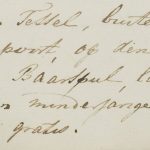 Tessel, buite
poort, of din
Baarspul, li
minderjarige
gratis.